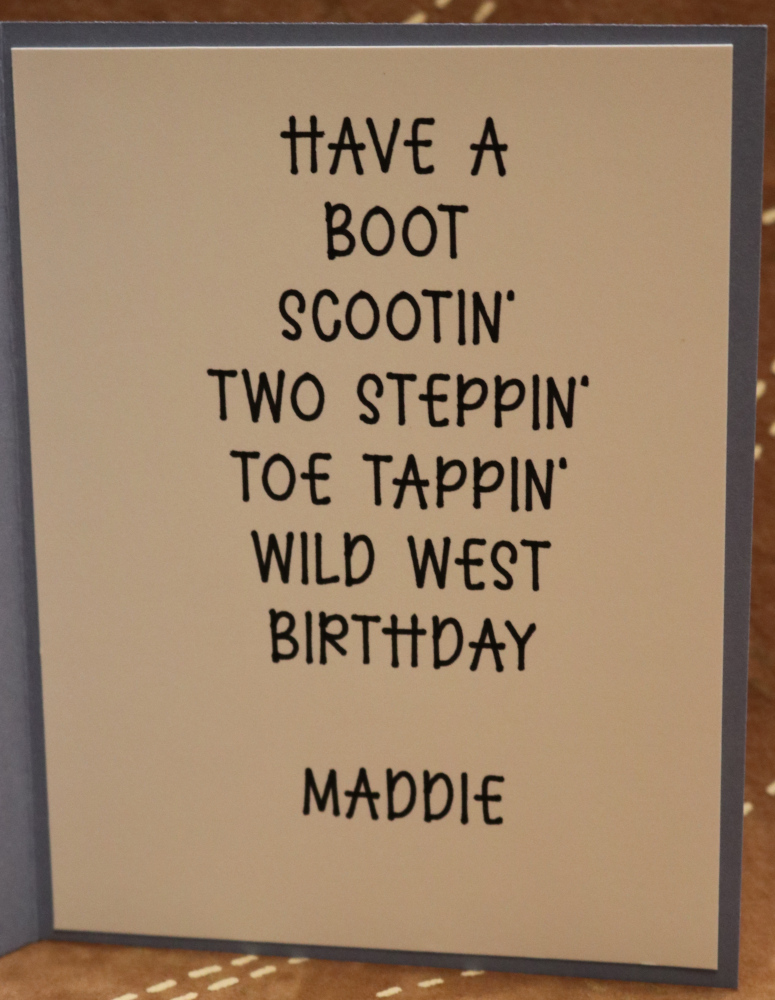 HAVE A
BOOT
SCOOTIN'
TWO STEPPIN'
TOE TAPPIN'
WILD WEST
BIRTHDAY
MADDIE